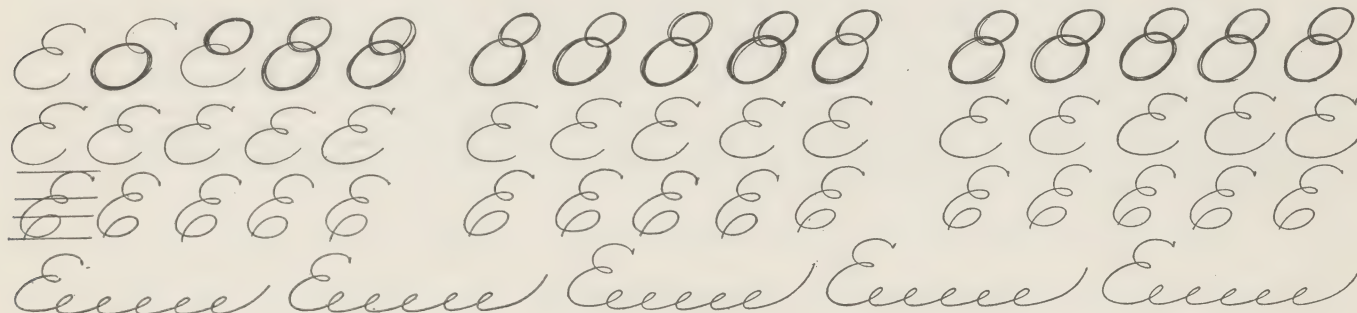 E
E E E E E E E E E E E E E E E
E E E E E E E E E E E E E E E
Eeeeee Eeeeee Eeeeee Eeeeee Eeeeee